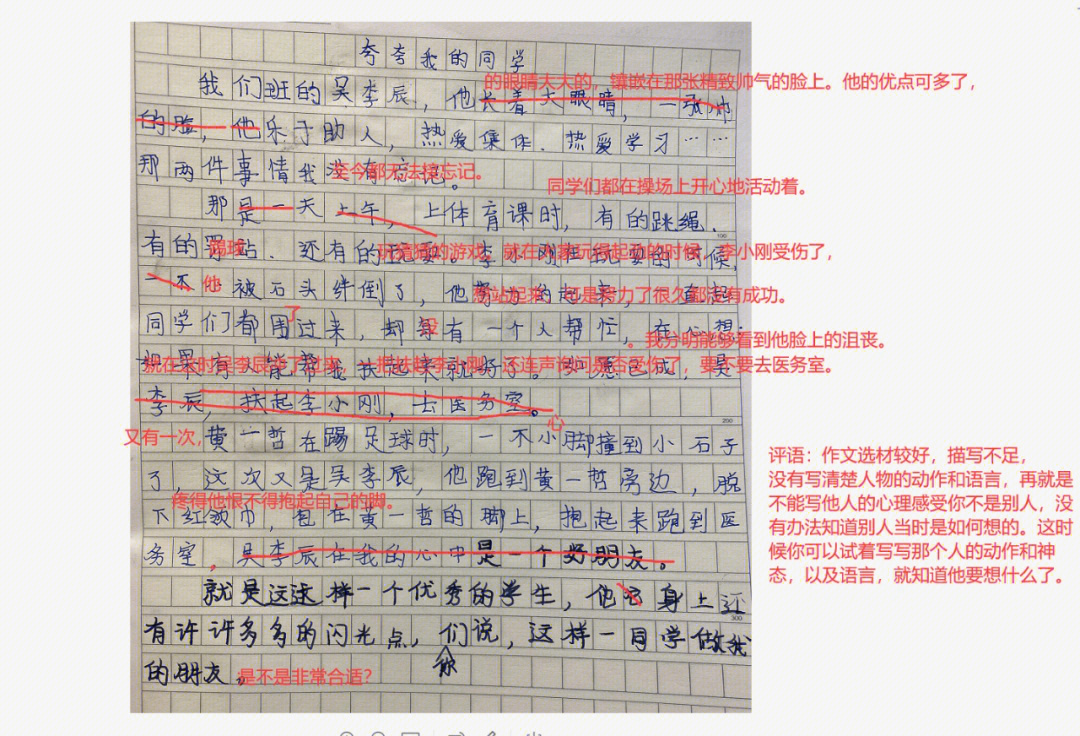 夸夸我的同学
的眼睛大大的，镶嵌在那张精致帅气的脸上。他的优点可多了，
我们班的吴李辰，他长着大眼睛，一张帅
的脸，他乐于助人，热爱集体．热爱学习……
那两件事情我没有忘记。
至今都无法接忘记。
同学们都在操场上开心地活动着。
那是一天上午，上体育课时，有的跳绳．
有的 站．还有的
踢球
李小刚受伤了，
一不 他 被石头绊倒了，他
想站起来 努力了很久都没有成功。
同学们都围过来，却 没有一个人帮忙，
了
。我分明能够看到他脸上的沮丧。
如果有人能帮我扶起来就好了。如愿已成，是
就在这时 李辰 连声询问是否受伤了，要不要去医务室。
李辰，扶起李小刚，去医务室。
心
又有一次，
黄一哲在踢足球时，一不小脚撞到小石子
了，这次又是吴李辰，他跑到黄一哲旁边，脱
疼得他恨不得抱起自己的脚。
下红领巾，包在黄一哲的脚上，抱起来跑到医
务室，吴李辰在我的心中是一个好朋友。
就是这样一个优秀的学生，他 身上还
有许许多多的闪光点，你们说，这样一同学做我
的朋友，
是不是非常合适？
评语：作文选材较好，描写不足，
没有写清楚人物的动作和语言，再就是
不能写他人的心理感受你不是别人，没
有办法知道别人当时是如何想的。这时
候你可以试着写写那个人的动作和神
态，以及语言，就知道他要想什么了。
100
200
300